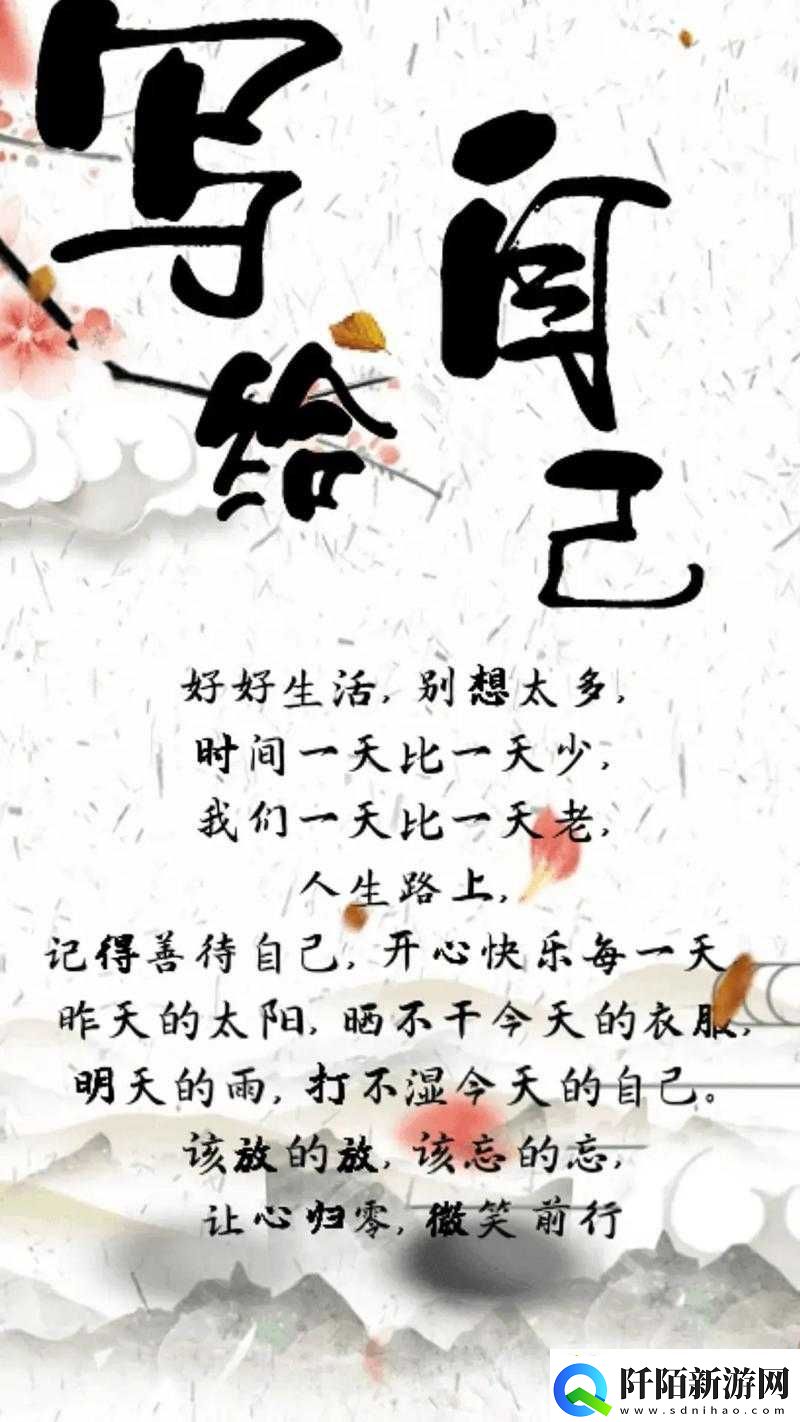 写给
自己
好好生活,别想太多,
时间一天比一天少,
我们一天比一天老,
人生路上,
记得善待自己,开心快乐每一天
昨天的太阳,晒不干今天的衣服,
明天的雨,打不湿今天的自己。
该放的放,该忘的忘,
让心归零,微笑前行
阡陌新游网
www.sdnihao.com